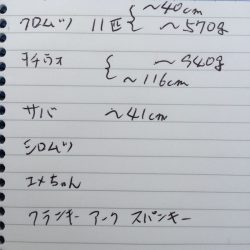 クロムツ 11匹 { ~40cm
~570g
ヨチラオ { ~940g
~116cm
サバ ~41cm
シロムツ
ユメちゃん
フランキー アーク スパンキー